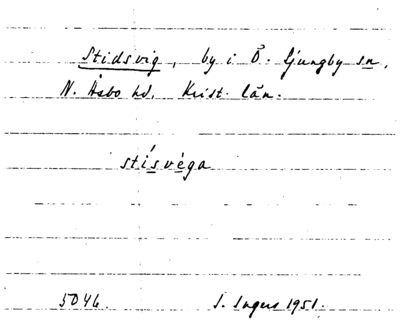 Stidsvig, by i Ö. Ljungby sn,
N. Åsbo hd. Krist. län.
stísvèga
5046. S. Ingers 1951.